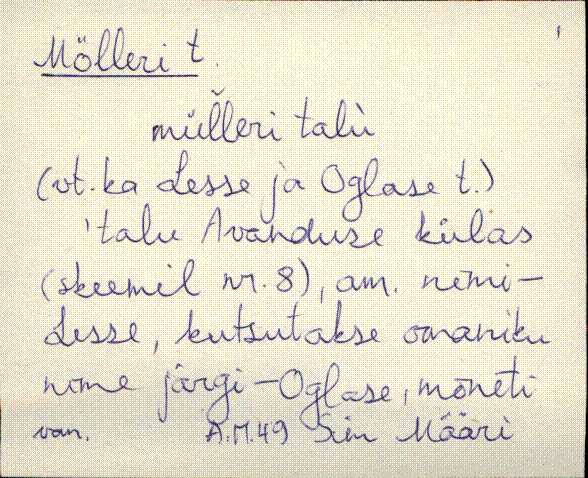 Mölleri t.
mülleri talù
(vt. ka Lesse ja Oglase t.)
'talu Avanduse külas
(skeemil nr. 8), am. nimi-
Lesse, kutsutakse omaniku
nime järgi - Oglase, mõneti
van. A.M.49 Sim Määri